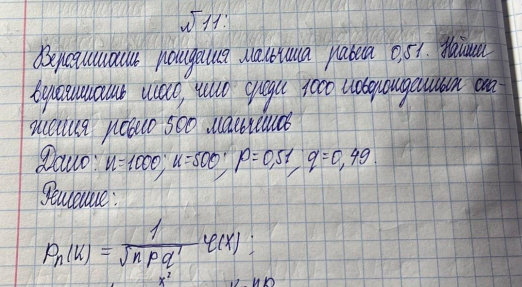 №11:
Вероятность рождения мальчика равна 0,51. Найти
вероятность того, что среди 1000 новорожденных ока-
жется ровно 500 мальчиков
Дано: n=1000; k=500; p=0,51; q=0,49.
Решение:
Pₙ(k) = 1/√npq φ(x);
x² k-np